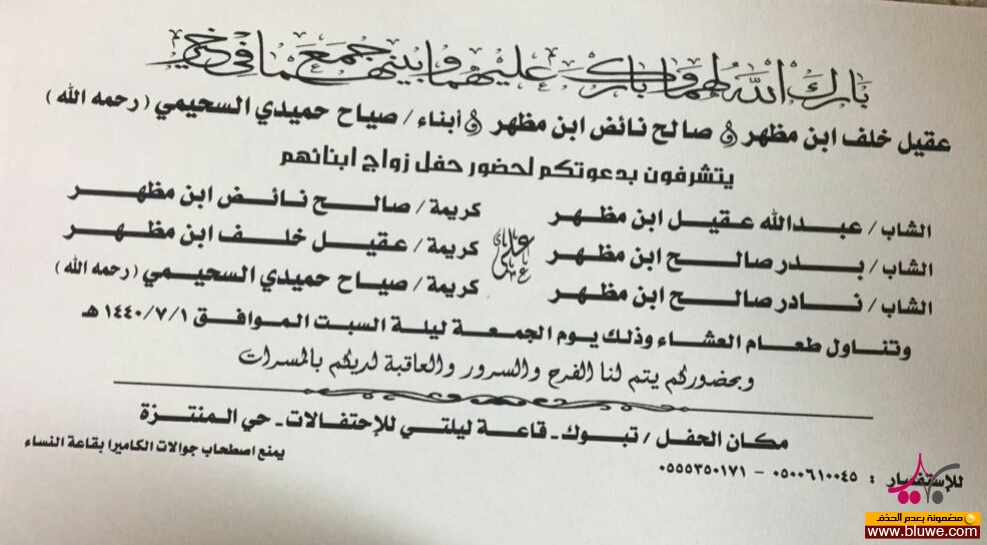 بارك الله لهما وبارك عليهما وجمع بينهما في خير
عقيل خلف ابن مظهر و صالح نائض ابن مظهر و أبناء / صياح حميدي السحيمي ( رحمه الله )
يتشرفون بدعوتكم لحضور حفل زواج ابنائهم
الشاب / عبدالله عقيل ابن مظهر على كريمة / صالح نائض ابن مظهر
الشاب / بدر صالح ابن مظهر على كريمة / عقيل خلف ابن مظهر
الشاب / نادر صالح ابن مظهر على كريمة / صياح حميدي السحيمي ( رحمه الله )
وتناول طعام العشاء وذلك يوم الجمعة ليلة السبت الموافق ١٤٤٠/٧/١ هـ
وبحضوركم يتم لنا الفرح والسرور والعاقبة لديكم بالمسرات
مكان الحفل / تبوك - قاعة ليلتي للإحتفالات - حي المنتزة
للإستفسار : ٠٥٠٠٦١٠٠٤٥ - ٠٥٥٥٣٥٠١٧١
يمنع اصطحاب جوالات الكاميرا بقاعة النساء
مضمونة بعدم الحذف
www.bluwe.com